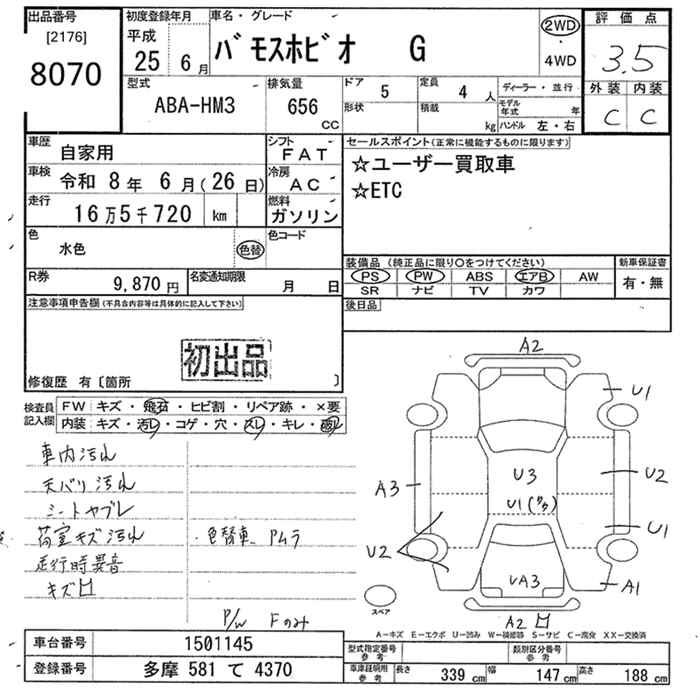 出品番号
[2176]
8070
初度登録年月
平成
25 6月
車名・グレード
バモスホビオ G
2WD
・
4WD
評価点
3.5
外装 内装
C C
型式
ABA-HM3
排気量
656
CC
ドア 5
形状
定員 4 人
積載 kg
ディーラー・並行
モデル年式 年
ハンドル 左・右
車歴
自家用
シフト
FAT
車検
令和 8年 6月(26日)
冷房
AC
走行
16万5千720 km
燃料
ガソリン
色
水色
色替
色コード
R券
9,870円
名変通知期限
月 日
セールスポイント(正常に機能するものに限ります)
☆ユーザー買取車
☆ETC
装備品(純正品に限り○をつけてください)
PS PW ABS エアB AW
SR ナビ TV カワ
新車保証書
有・無
後日品
注意事項申告欄(不具合内容等は具体的に記入して下さい)
初出品
修復歴 有〔箇所 〕
検査員
記入欄
FW キズ・飛石・ヒビ割・リペア跡・×要
内装 キズ・汚レ・コゲ・穴・スレ・キレ・破レ
車内汚れ
天バリ汚れ
シートヤブレ
荷室キズ汚れ
走行時異音
キズ凹
・色替車 Aムラ
P/W Fのみ
A2
U1
A3
U3
U2
U1(ワク)
U1
U2
UA3
A1
スペア
A2凹
A-キズ E-エクボ U-凹み W-補修跡 S-サビ C-腐食 XX-交換済
車台番号
1501145
型式指定番号
参考
類別区分番号
参考
登録番号
多摩 581 て 4370
車庫証明用
参考
長さ 339 cm 幅 147 cm 高さ 188 cm